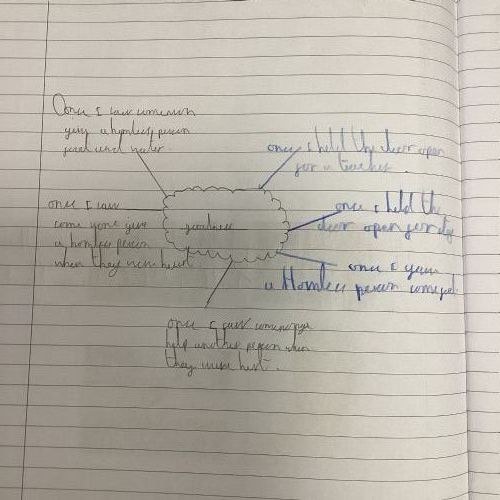 Once I saw someone
give a homless person
food and water
once I held the door open
for a teacher.
once I saw
some yone give
a homless person
when they were hurt
goodness
once I held the
door open for
once I gave
a Homless person some
once I saw
help another person when
they were hurt.